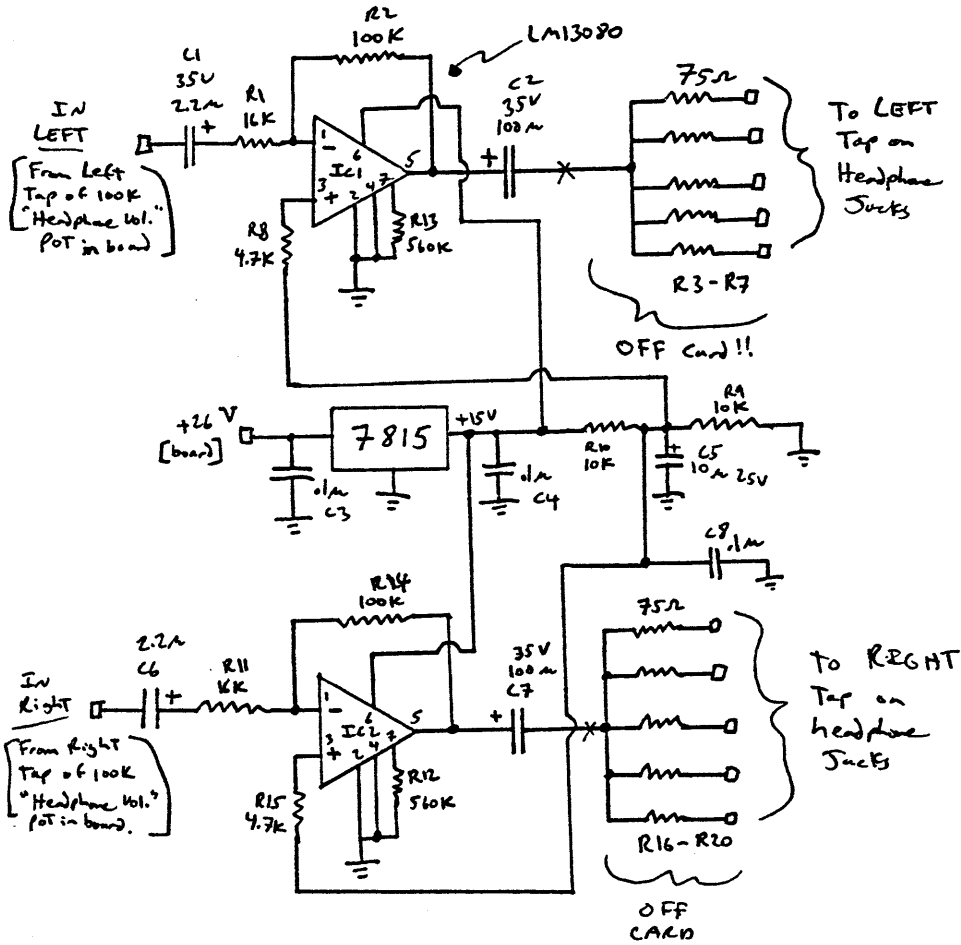 R2
100K
LM13080
C1
35V
2.2µ
R1
16K
C2
35V
100µ
75Ω
IN
LEFT
From Left
Tap of 100K
"Headphone Vol."
POT in board
+
1
-
6
IC1
5
3
+
2
4
7
+
R13
560K
R8
4.7K
To LEFT
Tap on
Headphone
Jacks
R3-R7
OFF Card!!
+26 V
[board]
7815
+15V
.1µ
C3
.1µ
C4
R10
10K
R9
10K
+
C5
10µ 25V
C8 .1µ
R14
100K
2.2µ
C6
+
R11
35V
100µ
C7
+
75Ω
IN
Right
From Right
Tap of 100K
"Headphone Vol."
POT in board.
1
-
6
IC2
5
3
+
2
4
7
R12
560K
R15
4.7K
To RIGHT
Tap on
headphone
Jacks
R16-R20
OFF
CARD